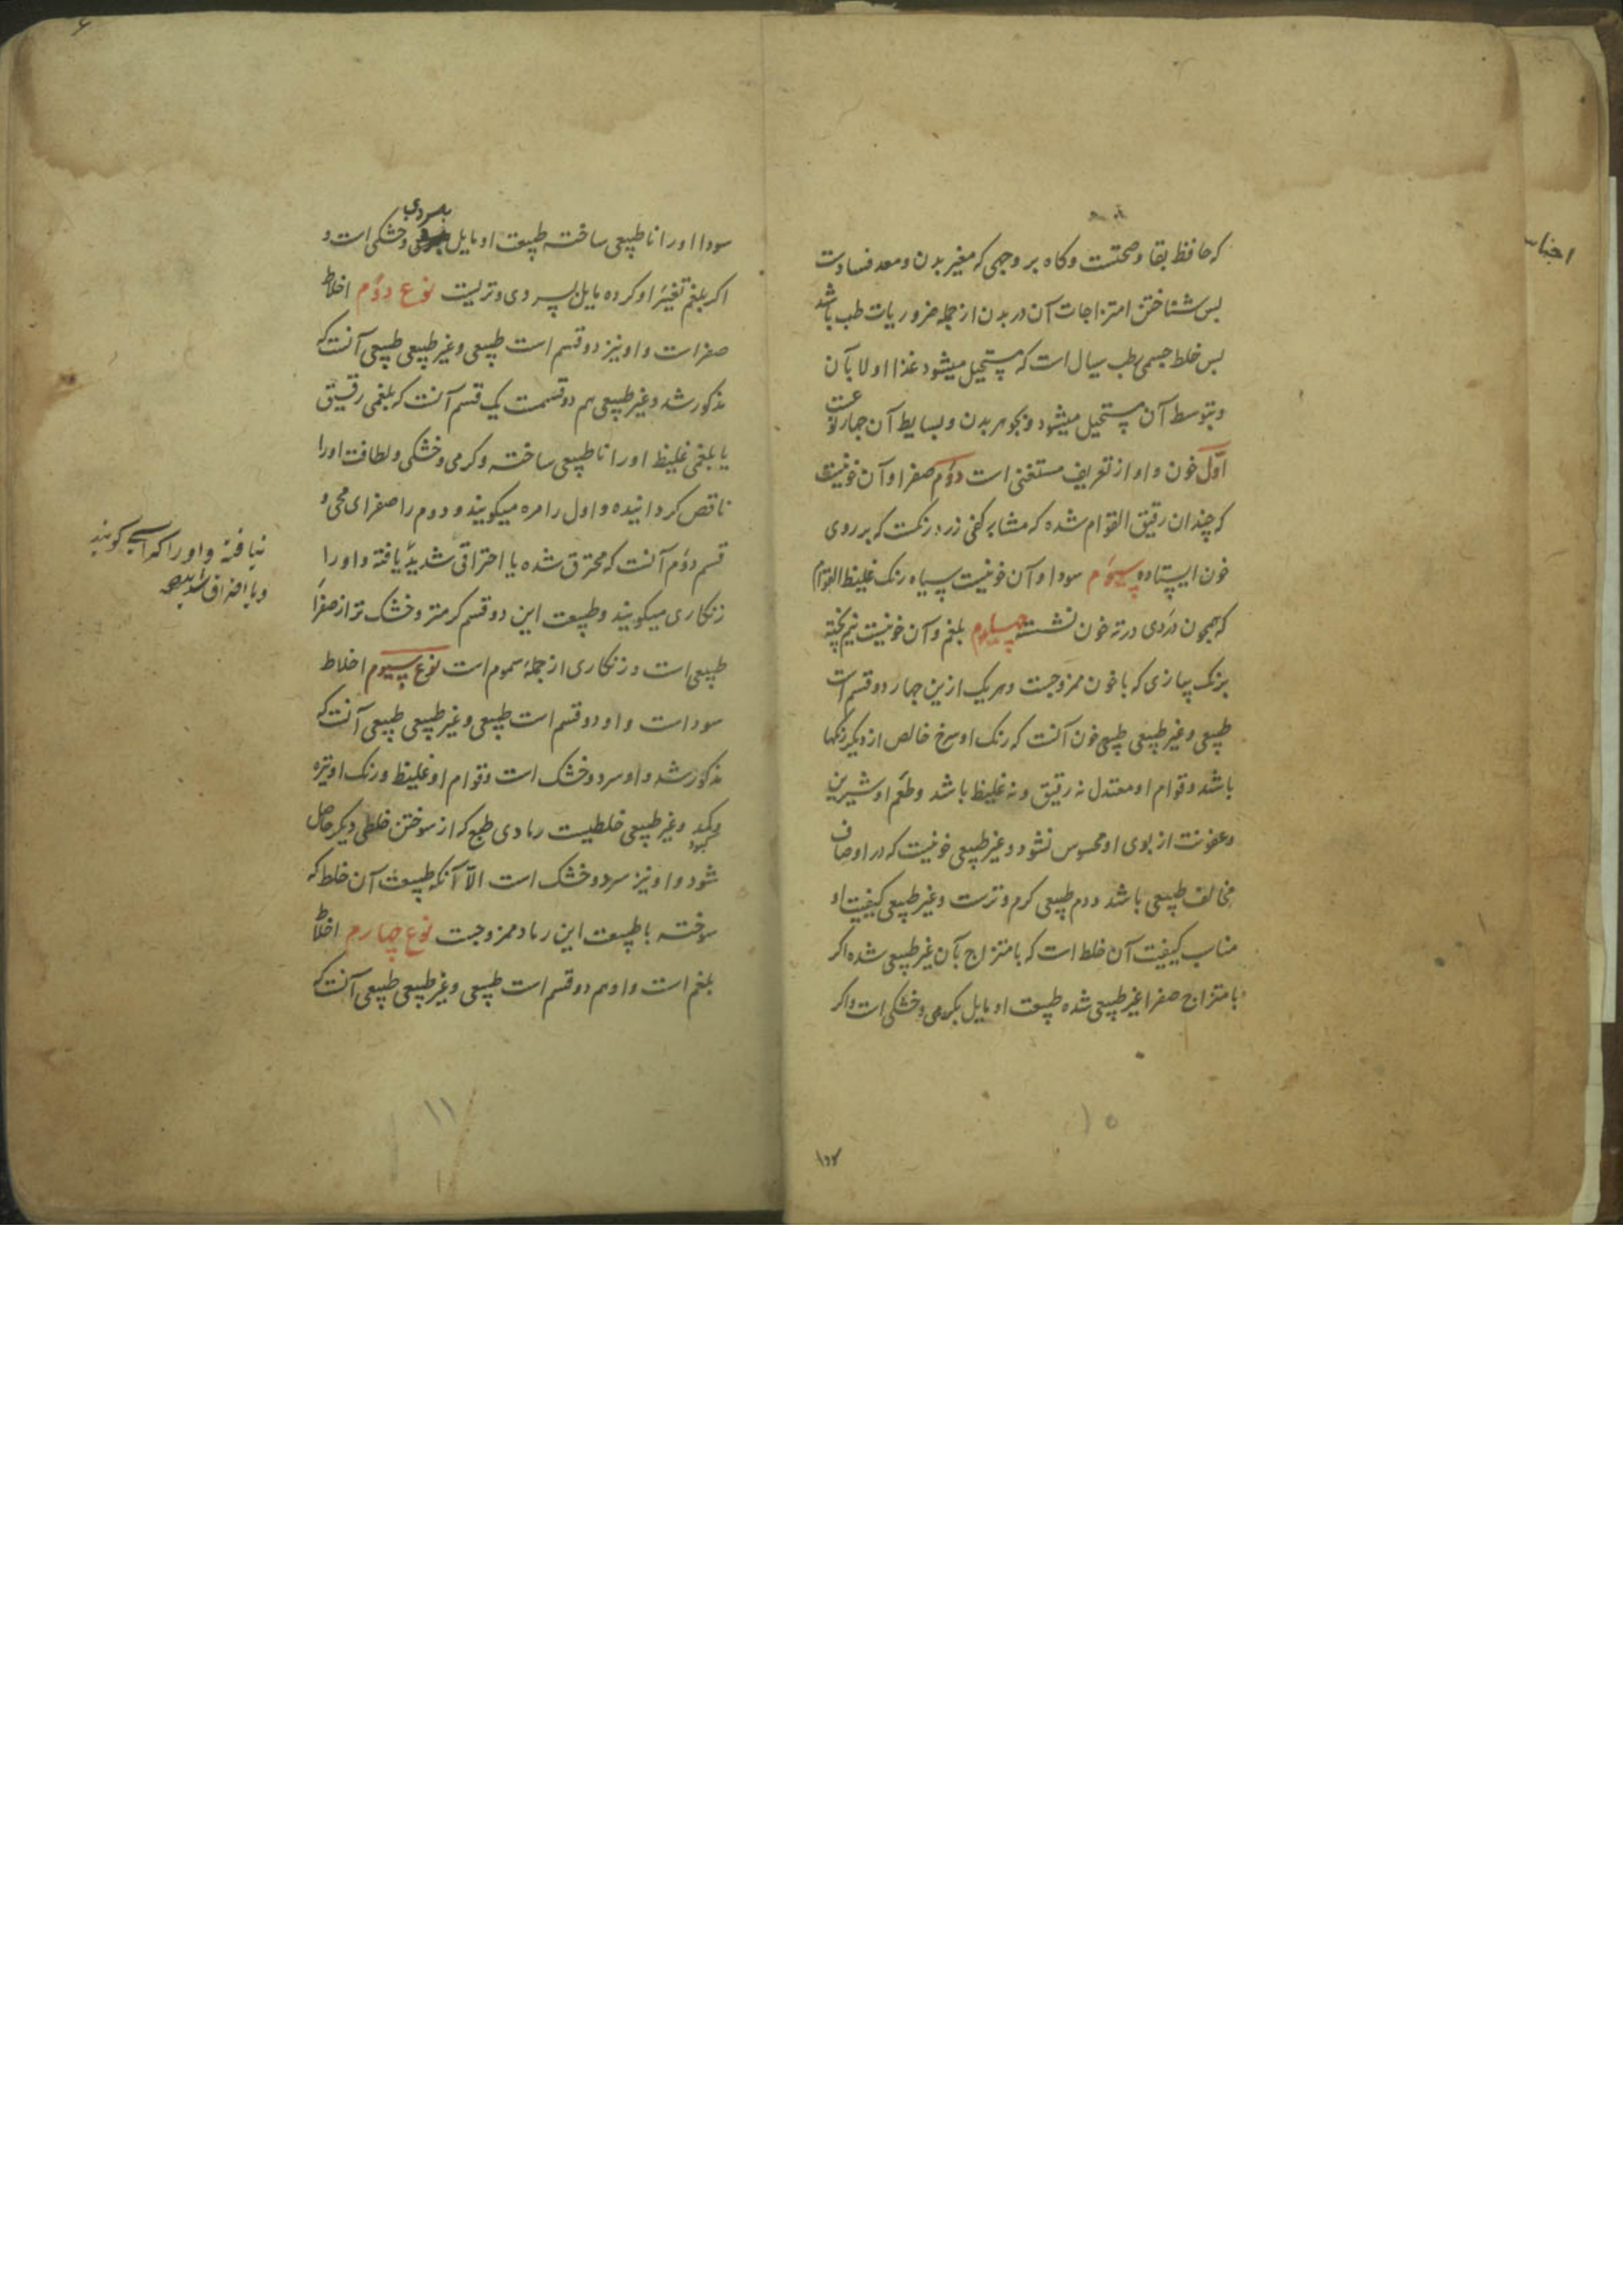 که حافظ بقا و صحتست و کاه بر وجهی که مغیر بدن و معد فسادست
بس شناختن امتزاجات آن در بدن از جمله ضروریات طب باشد
بس خلط جسمی رطب سیال است که مستحیل میشود غذا اولا بآن
و بتوسط آن مستحیل میشود و بجوهر بدن و بسایط آن جهار نوعست
اول خون و او از تعریف مستغنی است دوم صفرا و آن خونیست
که چندان رقیق القوام شده که مشابه کفی زرد رنکست که بر روی
خون ایستاده سیوم سودا و آن خونیست سیاه رنک غلیظ القوام
که همچون دردی در ته خون نشسته چهارم بلغم و آن خونیست نیم پخته
برنک پیازی که با خون ممزوجست و هر یک ازین جهار دو قسم است
طبیعی و غیر طبیعی طبیعی خون آنست که رنک او سرخ خالص از دیکر رنکها
باشد و قوام او معتدل نه رقیق و نه غلیظ باشد و طعم او شیرین
و عفونت از بوی او محسوس نشود و غیر طبیعی خونیست که در اوصاف
مخالف طبیعی باشد و دم طبیعی کرم و ترست و غیر طبیعی کیفیت او
مناسب کیفیت آن خلط است که بامتزاج بآن غیر طبیعی شده اکر
بامتزاج صفرا غیر طبیعی شده طبیعت او مایل بکرمی و خشکی است و اکر
۱۵
سودا
سودا او را نا طبیعی ساخته طبیعت او مایل بسردی و خشکی است و
اکر بلغم تغیر او کرده مایل بسردی و تریست نوع دوم اخلاط
صفراست و او نیز دو قسم است طبیعی و غیر طبیعی طبیعی آنست که
مذکور شد و غیر طبیعی هم دو قسمت یک قسم آنست که بلغمی رقیق
یا بلغمی غلیظ او را نا طبیعی ساخته و کرمی و خشکی و لطافت او را
ناقص کردانیده و اول را مره میکویند و دوم را صفرای محی و
قسم دوم آنست که محترق شده یا احتراقی شدید یافته و او را
زنکاری میکویند و طبیعت این دو قسم کرمتر و خشک تر از صفرا
طبیعی است و زنکاری از جمله سموم است نوع سیوم اخلاط
سوداست و او دو قسم است طبیعی و غیر طبیعی طبیعی آنست که
مذکور شد و او سرد و خشک است و قوام او غلیظ و رنک او تیره
و کمد و غیر طبیعی خلطیست رمادی طبع که از سوختن خلطی دیکر حاصل
کبود
شود و او نیز سرد و خشک است الا آنکه طبیعت آن خلط که
سوخته با طبیعت این رماد ممزوجست نوع چهارم اخلاط
بلغم است و او هم دو قسم است طبیعی و غیر طبیعی طبیعی آنست که
نیافته و او را کراثی کویند
و یا احتراق شدید
۱۱
۶
اجناس